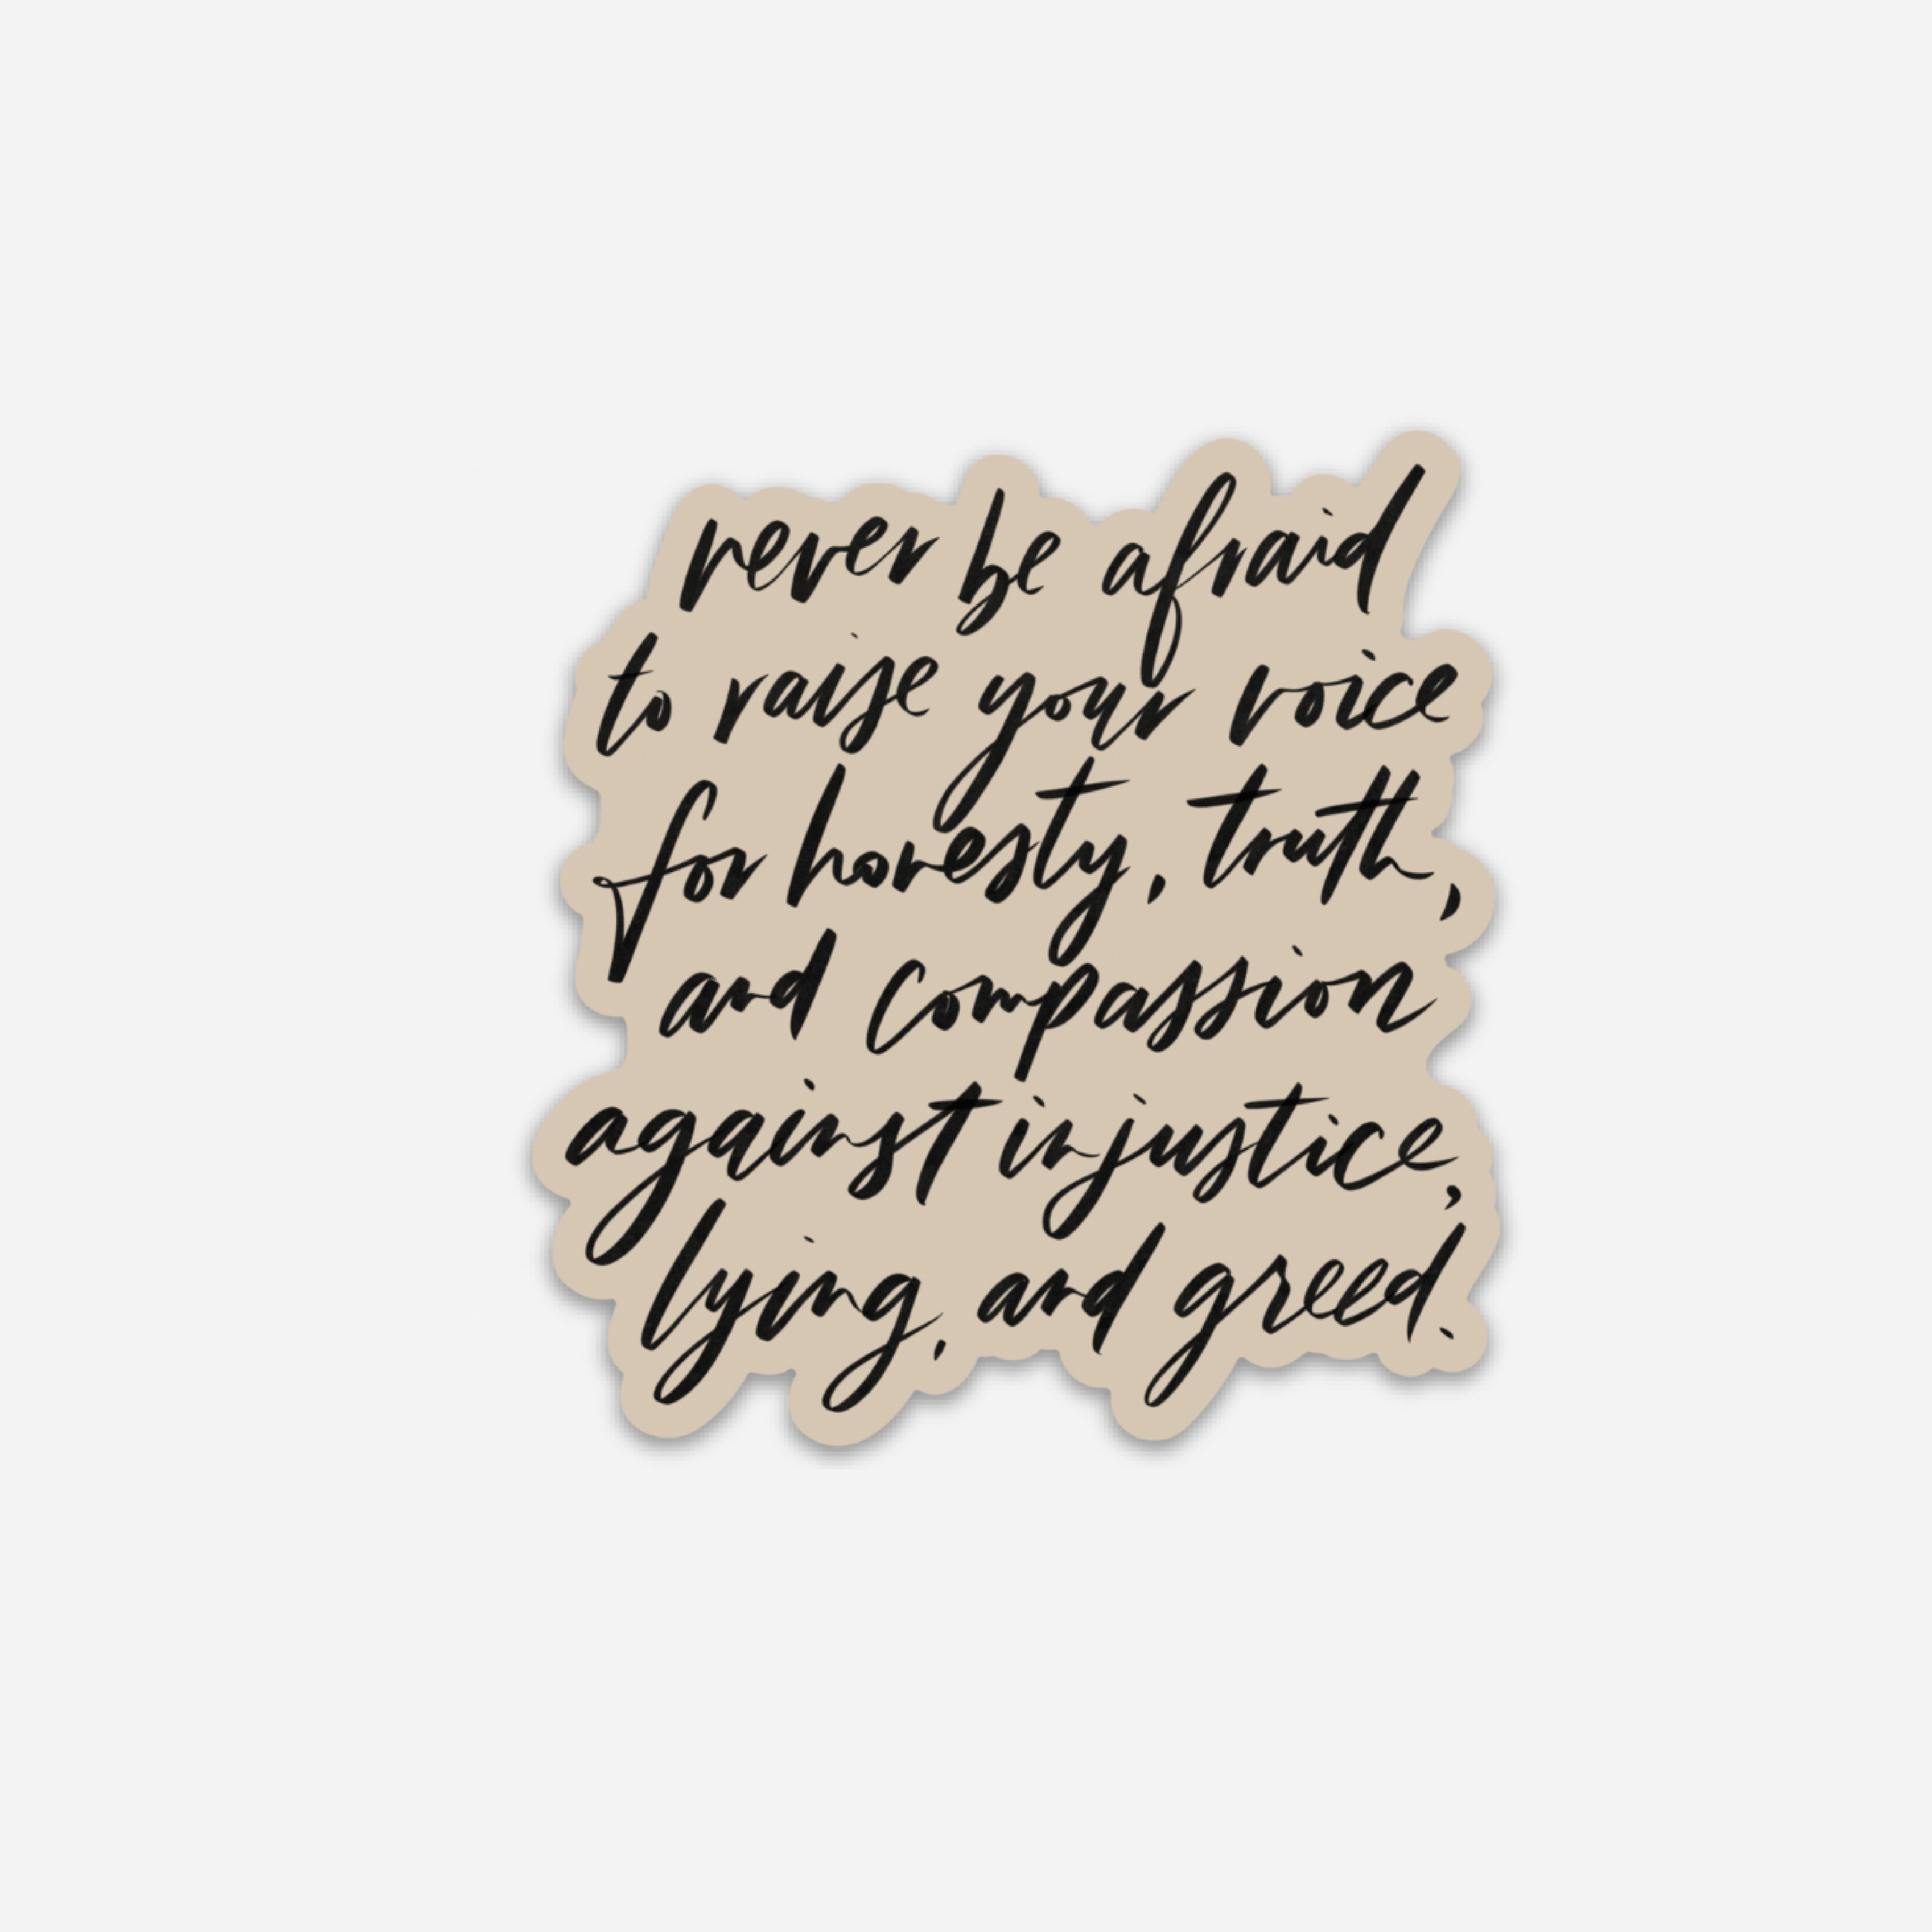 never be afraid
to raise your voice
for honesty, truth,
and compassion
against injustice,
lying, and greed.